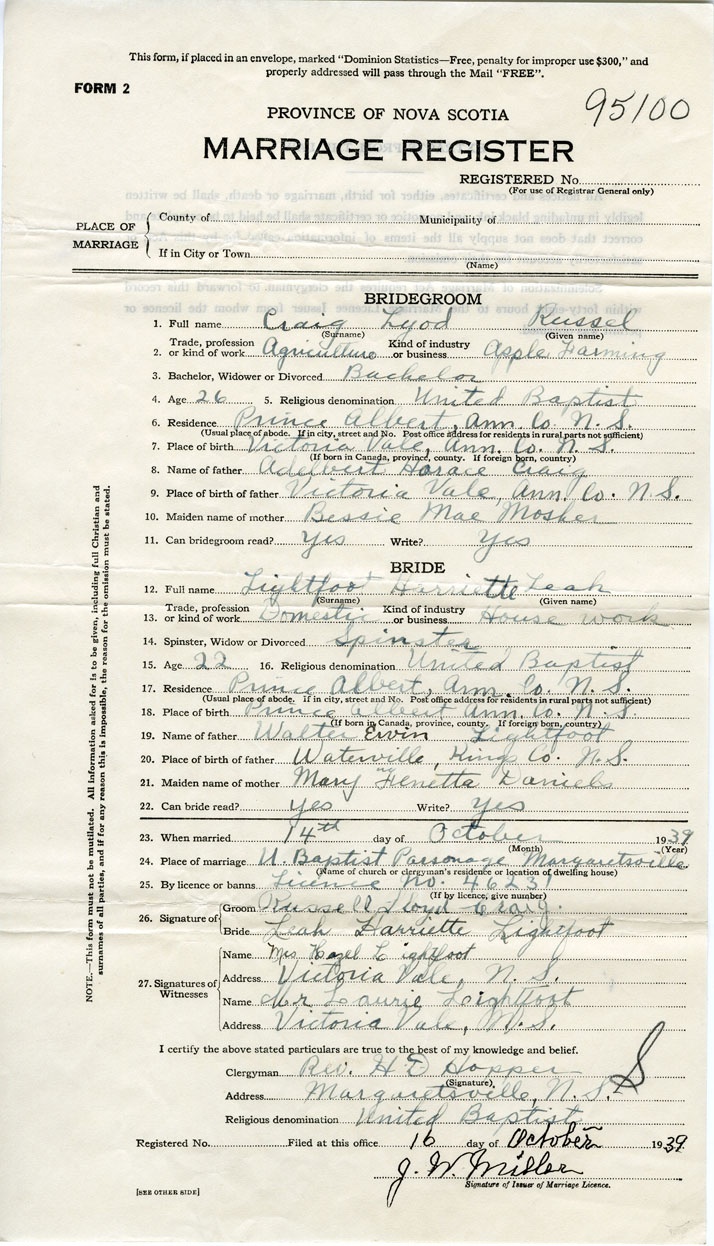 This form, if placed in an envelope, marked "Dominion Statistics—Free, penalty for improper use $300," and
properly addressed will pass through the Mail "FREE".
FORM 2
95100
PROVINCE OF NOVA SCOTIA
MARRIAGE REGISTER
REGISTERED No.
(For use of Registrar General only)
PLACE OF MARRIAGE
County of Municipality of
If in City or Town
(Name)
BRIDEGROOM
1. Full name Craig Lyod Russel
(Surname) (Given name)
2. Trade, profession or kind of work Agriculture Kind of industry or business Apple Farming
3. Bachelor, Widower or Divorced Bachelor
4. Age 26 5. Religious denomination United Baptist
6. Residence Prince Albert, Ann. Co. N. S.
(Usual place of abode. If in city, street and No. Post office address for residents in rural parts not sufficient)
7. Place of birth Victoria Vale, Ann. Co. N. S.
(If born in Canada, province, county. If foreign born, country)
8. Name of father Adelbert Horace Craig
9. Place of birth of father Victoria Vale, Ann. Co. N. S.
10. Maiden name of mother Bessie Mae Mosher
11. Can bridegroom read? Yes Write? Yes
BRIDE
12. Full name Lightfoot Harriette Leah
(Surname) (Given name)
13. Trade, profession or kind of work Domestic Kind of industry or business House work
14. Spinster, Widow or Divorced Spinster
15. Age 22 16. Religious denomination United Baptist
17. Residence Prince Albert, Ann. Co. N. S.
(Usual place of abode. If in city, street and No. Post office address for residents in rural parts not sufficient)
18. Place of birth Prince Albert Ann. Co. N. S.
(If born in Canada, province, county. If foreign born, country)
19. Name of father Walter Ervin Lightfoot
20. Place of birth of father Waterville, Kings Co. N. S.
21. Maiden name of mother Mary Fenetta Daniels
22. Can bride read? yes Write? yes
23. When married 14th day of October 1939
(Month) (Year)
24. Place of marriage U. Baptist Parsonage Margaretsville
(Name of church or clergyman's residence or location of dwelling house)
25. By licence or banns Licence No. 46231
(If by licence, give number)
26. Signature of
Groom Russell Lloyd Craig.
Bride Leah Harriette Lightfoot
27. Signatures of Witnesses
Name Mrs Hazel Lightfoot
Address Victoria Vale, N. S.
Name Mr Laurie Lightfoot
Address Victoria Vale, N. S.
I certify the above stated particulars are true to the best of my knowledge and belief.
Clergyman Rev. H D Hopper
(Signature)
Address Margaretsville, N. S.
Religious denomination United Baptist
Registered No. Filed at this office 16 day of October 1939
J. W. Miller
Signature of Issuer of Marriage Licence.
[SEE OTHER SIDE]
NOTE.—This form must not be mutilated. All information asked for is to be given, including full Christian and
surnames of all parties, and if for any reason this is impossible, the reason for the omission must be stated.